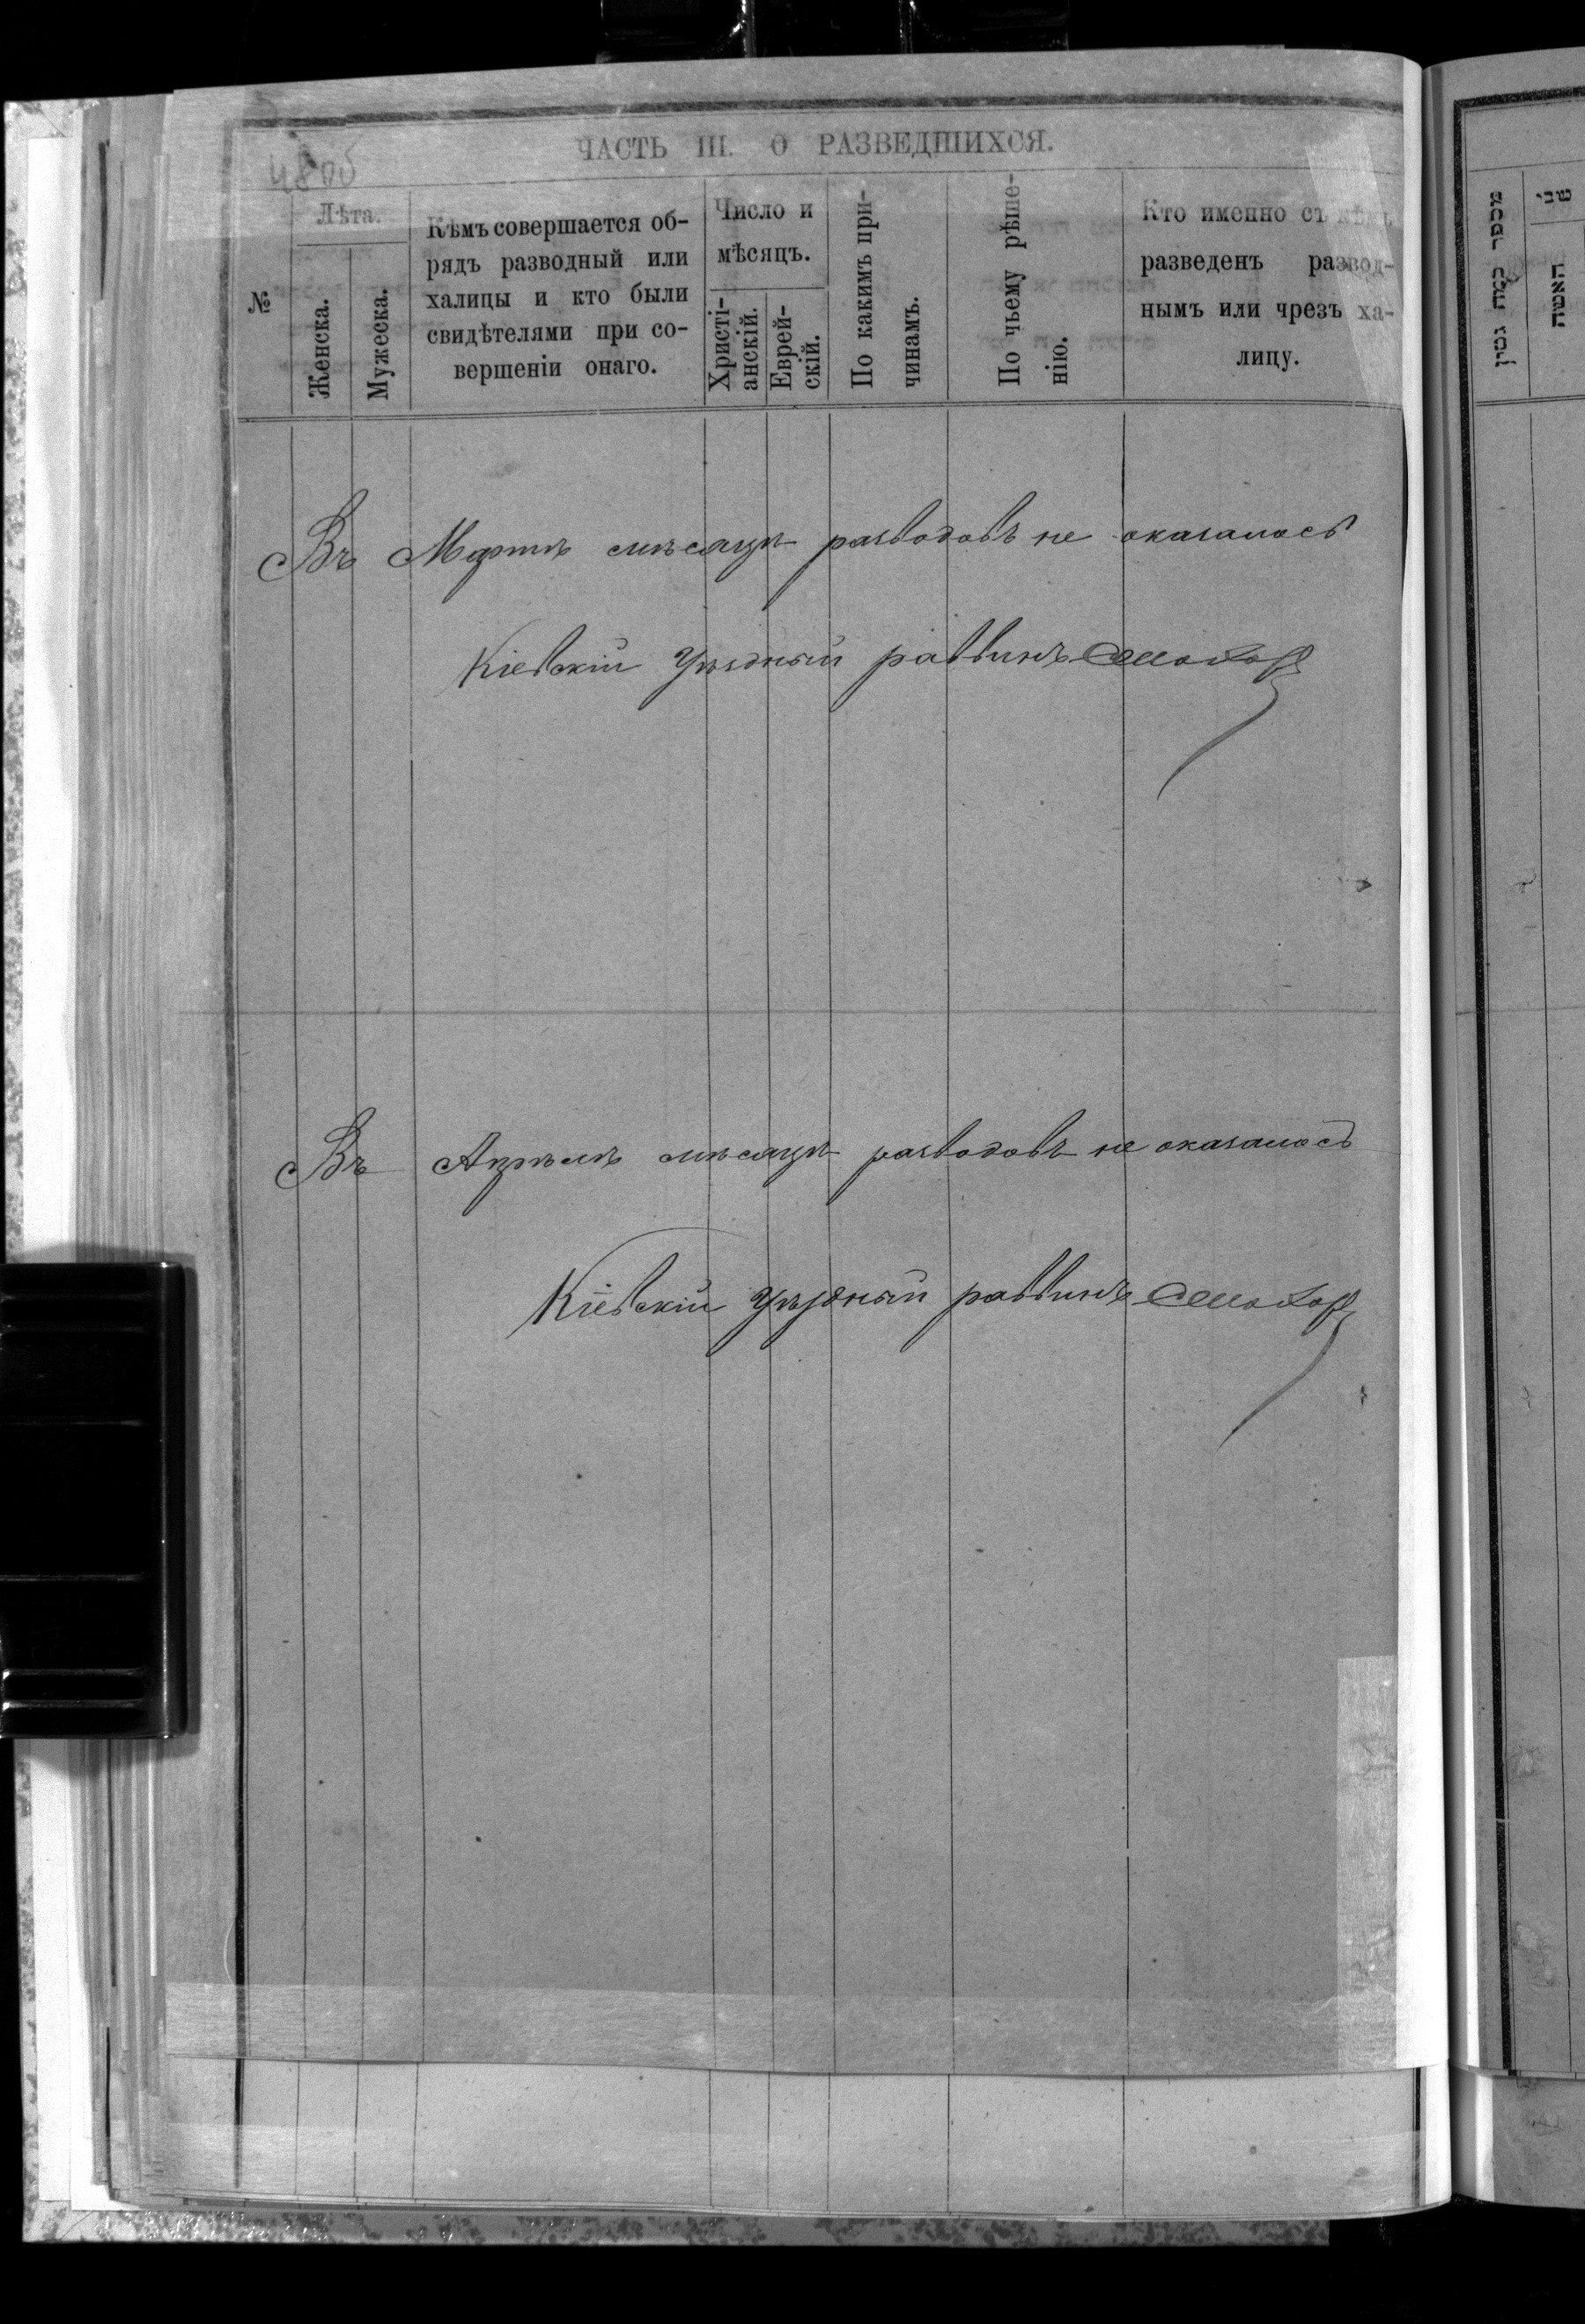 48об
ЧАСТЬ III. О РАЗВЕДШИХСЯ.
№
Лѣта.
Женска.
Мужеска.
Кѣмъ совершается об-
рядъ разводный или
халицы и кто были
свидѣтелями при со-
вершеніи онаго.
Число и
мѣсяцъ.
Христі-
анскій.
Еврей-
скій.
По какимъ при-
чинамъ.
По чьему рѣше-
нію.
Кто именно съ кѣмъ
разведенъ развод-
нымъ или чрезъ ха-
лицу.
Въ Мартѣ мѣсяцѣ разводовъ не оказалось
Кіевскій Уѣздный раввинъ
Въ Апрѣлѣ мѣсяцѣ разводовъ не оказалось
Кіевскій Уѣздный раввинъ
מספר כמה גטין
האשה